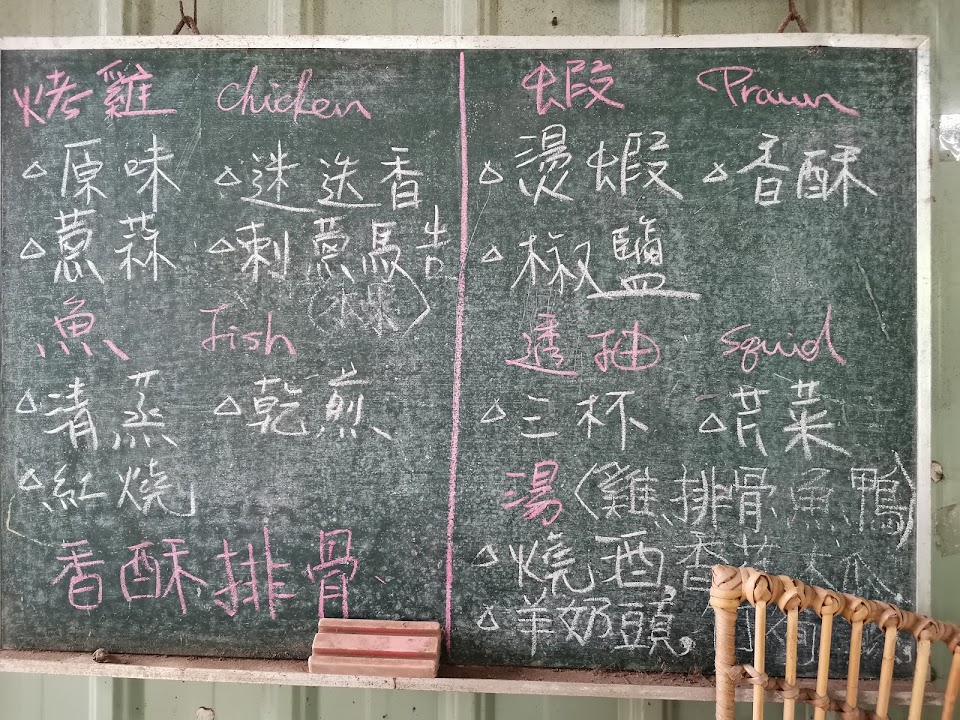 烤雞 chicken
△原味 △迷迭香
△蔥蒜 △刺蔥馬告
魚 Fish
△清蒸 △乾煎
△紅燒
香酥排骨
蝦 Prawn
△燙蝦 △香酥
△椒鹽
透抽 squid
△三杯 △芹菜
湯(雞、排骨、魚、鴨)
△燒酒,香
△羊奶頭,